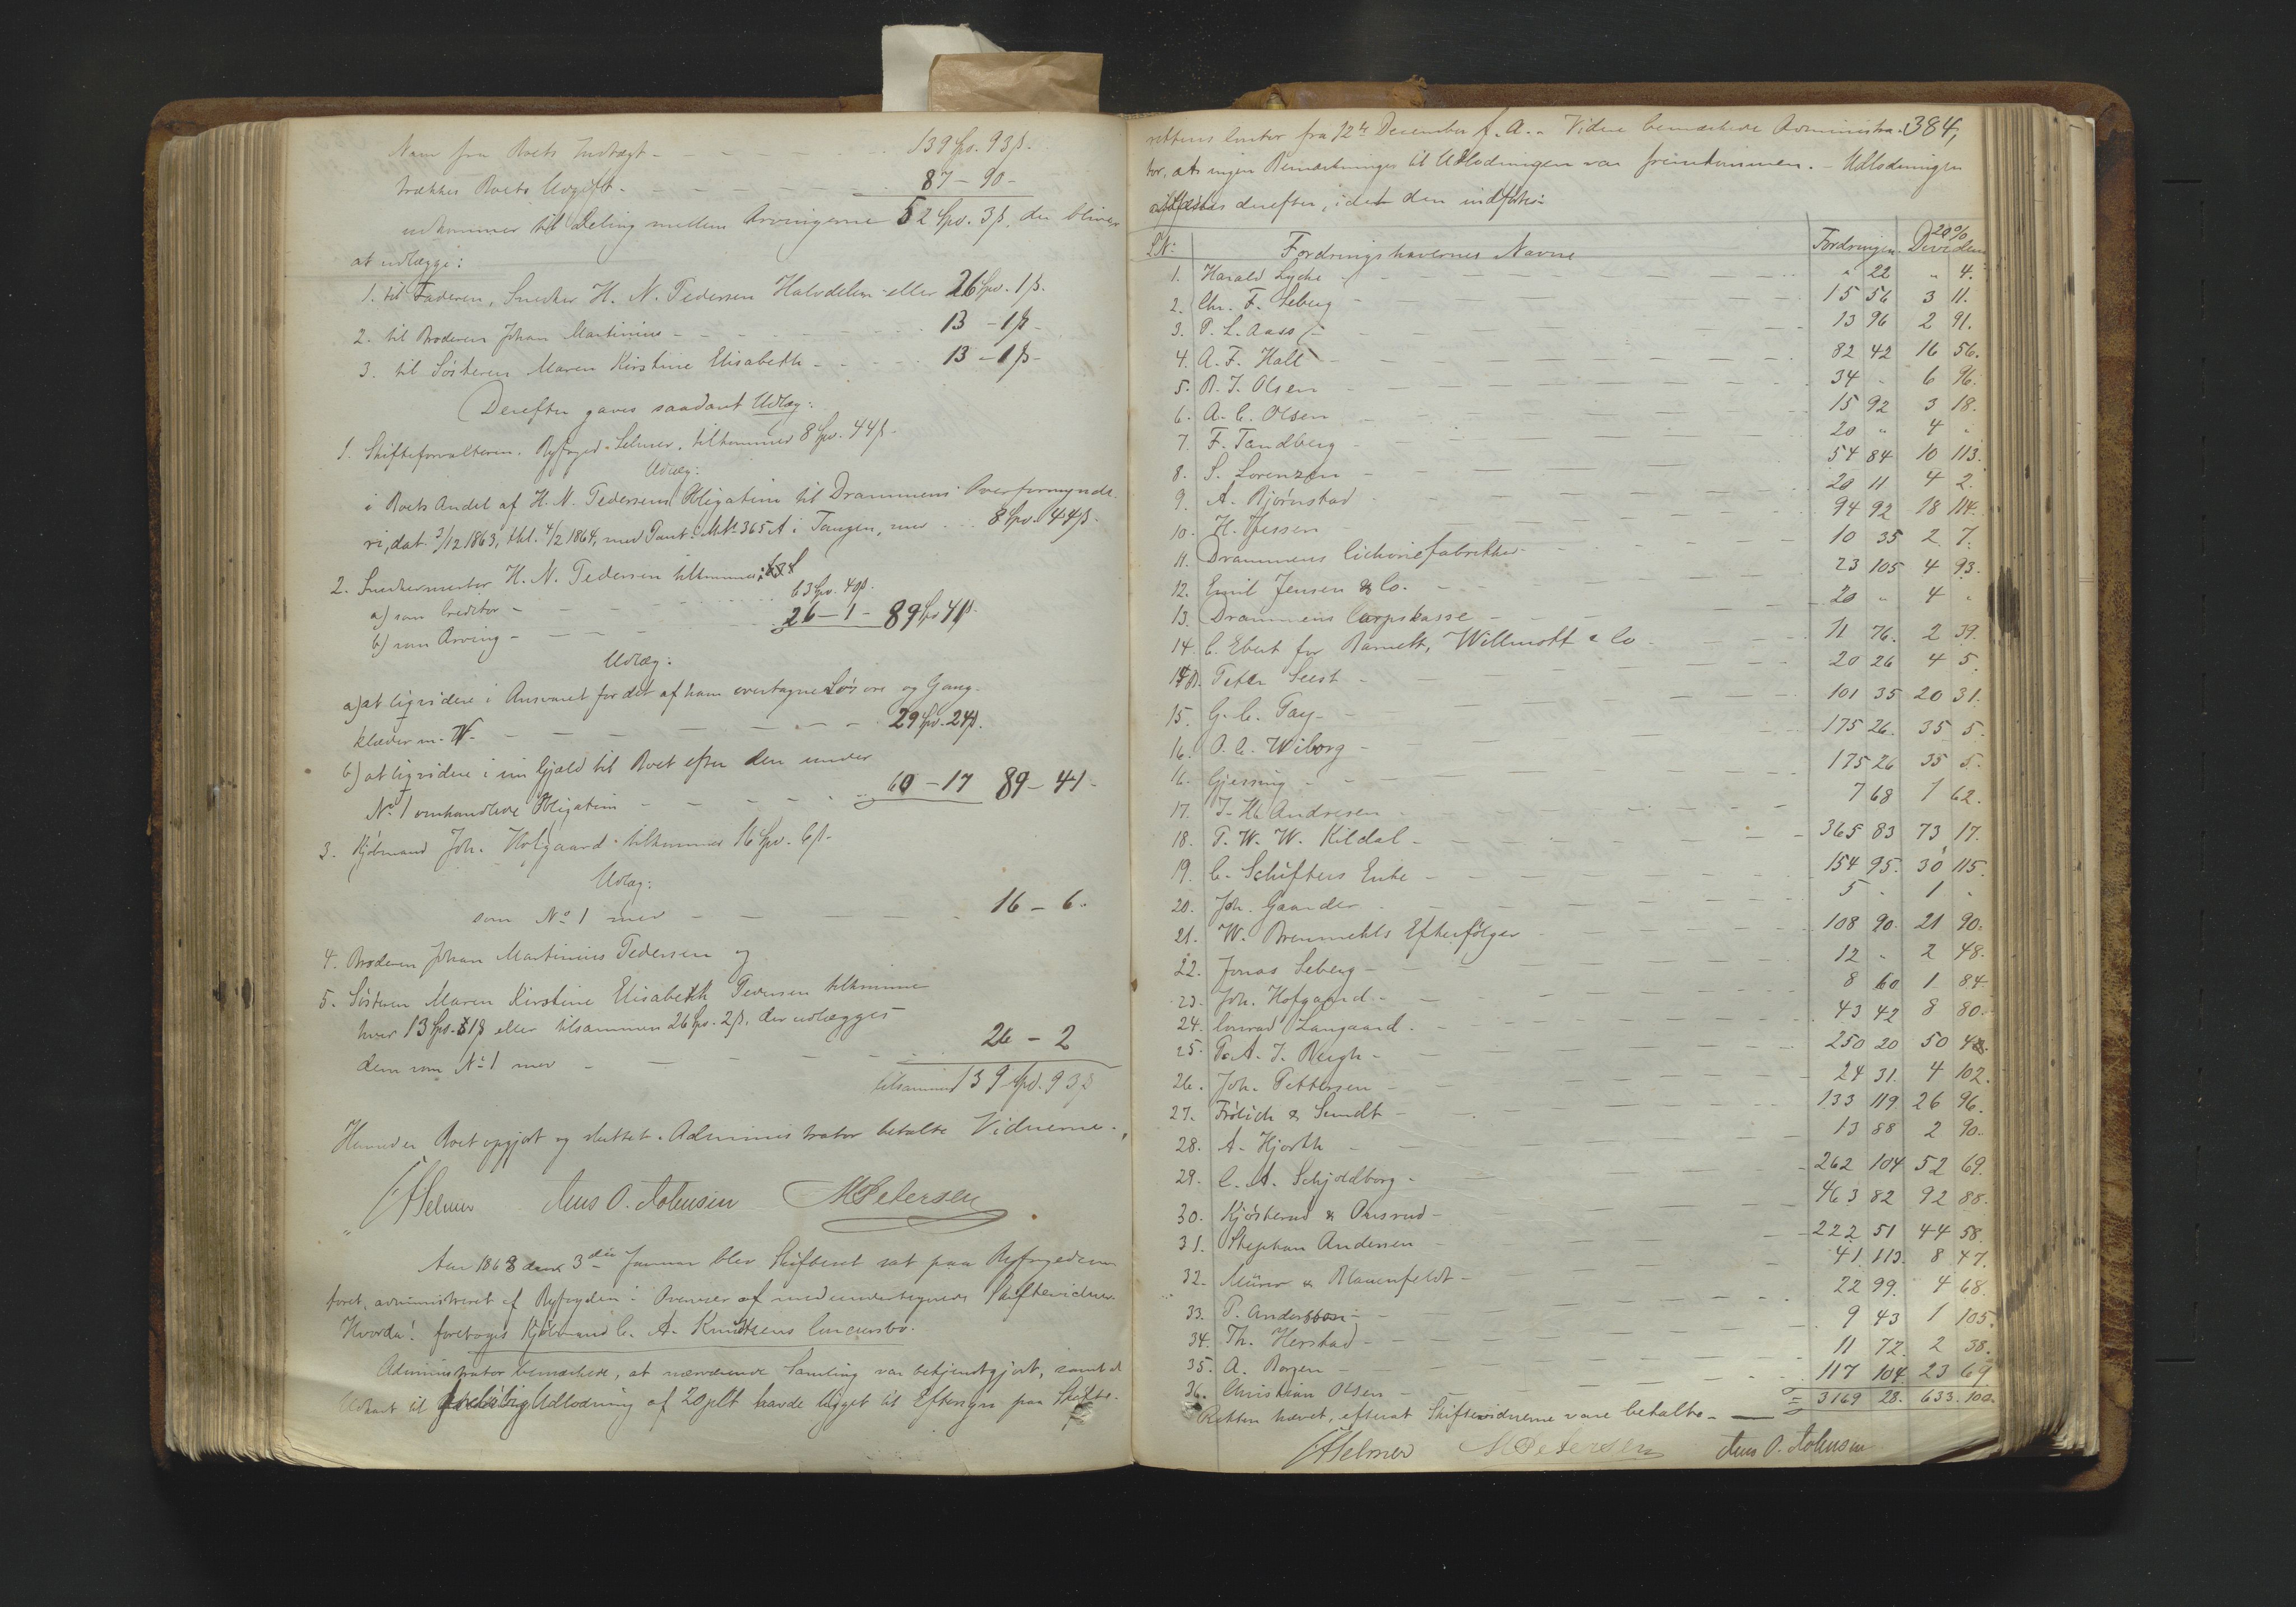 Naar fra Boets Indtægt - 139 Spd. 93 ß.
trækkes Boets Udgift - 87 - 90 -
udkommer til Deling mellem Arvingerne 52 Spd. 3 ß, der bliver
at udlægge:
1. til Faderen, Snedker H. N. Pedersen Halvdelen eller 26 Spd. 1 ß.
2. til Broderen Johan Martinius - 13 - 1 ß -
3. til Søsteren Maren Kirstine Elisabeth - 13 - 1 ß -
Derefter gaves saadant Udlæg:
1. Skifteforvalteren, Byfoged Selmer, tilkommer 8 Spd. 44 ß.
Udlæg:
i Boets Andel af H. N. Pedersens Obligation til Drammens Overformynde-
ri, dat. 3/12 1863, thl. 4/2 1864, med Pant i Mt. No 365 A i Tangen, med 8 Spd. 44 ß.
2. Snedkermester H. N. Pedersen tilkommer:
a) som Creditor - 63 Spd. 40 ß.
b) som Arving - 26 - 1 - 89 Spd 41 ß.
Udlæg:
a) at liqvidere i Ansvaret for det af ham overtagne Løsøre og Gang-
klæder m. V. - 29 Spd. 24 ß.
b) at liqvidere i sin Gjæld til Boet efter den under
No 1 omhandlede Obligation - 60 - 17 89 - 41 -
3. Kjøbmand Joh. Hofgaard tilkommer 16 Spd. 6 ß.
Udlæg:
som No 1 med - 16 - 6.
4. Broderen Johan Martinius Pedersen og
5. Søsteren Maren Kirstine Elisabeth Pedersen tilkommer
hver 13 Spd. 1 ß eller tilsammen 26 Spd. 2 ß, der udlægges
dem som No 1 med - 26 - 2
tilsammen 139 Spd. 93 ß
Hermed er Boet opgjort og sluttet. Administrator betalte Vidnerne.
Selmer Jens O. Johnsen M Petersen
Aar 1868 den 3die Januar blev Skifteret sat paa Byfogedcon-
toret, administreret af Byfogden i Overvær af medundertegnede Skiftevidner.
Hvorda: foretoges Kjøbmand C. A. Knudsens Concursbo.
Administrator bemærkede, at nærværende Samling var bekjendtgjort, samt at
Udkast til foreløbig Udlodning af 20 pCt havde ligget til Eftersyn paa Skifte-
384,
rettens Contor fra 12te December f. A. - Videre bemærkede Administra-
tor, at ingen Bemærkninger til Udlodningen var fremkommen. - Udlodningen
derefter, idet den indføres:
L. No: Fordringshavernes Navne Fordringen 20% Dividende
1. Harald Lyche - " 22 " 4.
2. Chr. F. Seberg - 15 56 3 11.
3. P. L. Aass - 13 96 2 91.
4. A. F. Hall - 82 42 16 56.
5. B. J. Olsen - 34 - 6 96.
6. A. C. Olsen 15 92 3 18.
7. F. Tandberg - 20 " 4 "
8. S. Lorenzen - 54 84 10 113.
9. A. Bjørnstad - 20 11 4 2.
10. H. Thessen 94 92 18 114.
11. Drammens Cichoriefabrikker - 10 35 2 7.
12. Emil Jensen & Co. - 23 105 4 93.
13. Drammens Corpskasse - 20 " 4 "
14. C. Ebert for Barnett, Willmott & Co - 11 76. 2 39.
14 B. Peter Seest - 20 26 4 5.
15. G. C. Fay - 101 35 20 31.
16. O. C. Wiborg - 175 26. 35 5.
16. Gjessing - 175 26 35 5.
17. J. H. Andresen - 7 68 1 62.
18. P. W. W. Kildal - 365 83 73 17.
19. C. Schifters Enke - 154 95. 30 115.
20. Joh. Gaarder - 5 - 1 -
21. W. Brenmehls Efterfølger - 108 90. 21 90.
22. Jonas Seberg - 12 " 2 48.
23. Joh. Hofgaard - 8 60 1 84.
24. Conrad Langaard - 43 42 8 80.
25. P. A. J. Bergh - 250 20 50 4.
26. Joh. Pettersen - 24 31. 4 102.
27. Frölich & Sundt - 133 119. 26 96.
28. A. Hjorth - 13 88 2 90.
29. C. A. Schjoldborg - 262 104 52 69.
30. Kjøsterud & Omsrud - 463 82 92 88.
31. Stephan Andersen 222 51 44 58.
32. Münst & Blauenfeldt - 41 113. 8 47.
33. P. Anderson - 22 99. 4 68.
34. Th. Herstad - 9 43 1 105.
35. A. Borgen - 11 72. 2 38.
36. Christian Olsen - 117 104. 23 69.
= 3169 28. 633. 100.
Retten hævet, efterat Skiftevidnerne vare betalte -
Selmer M Petersen Jens O. Johnsen